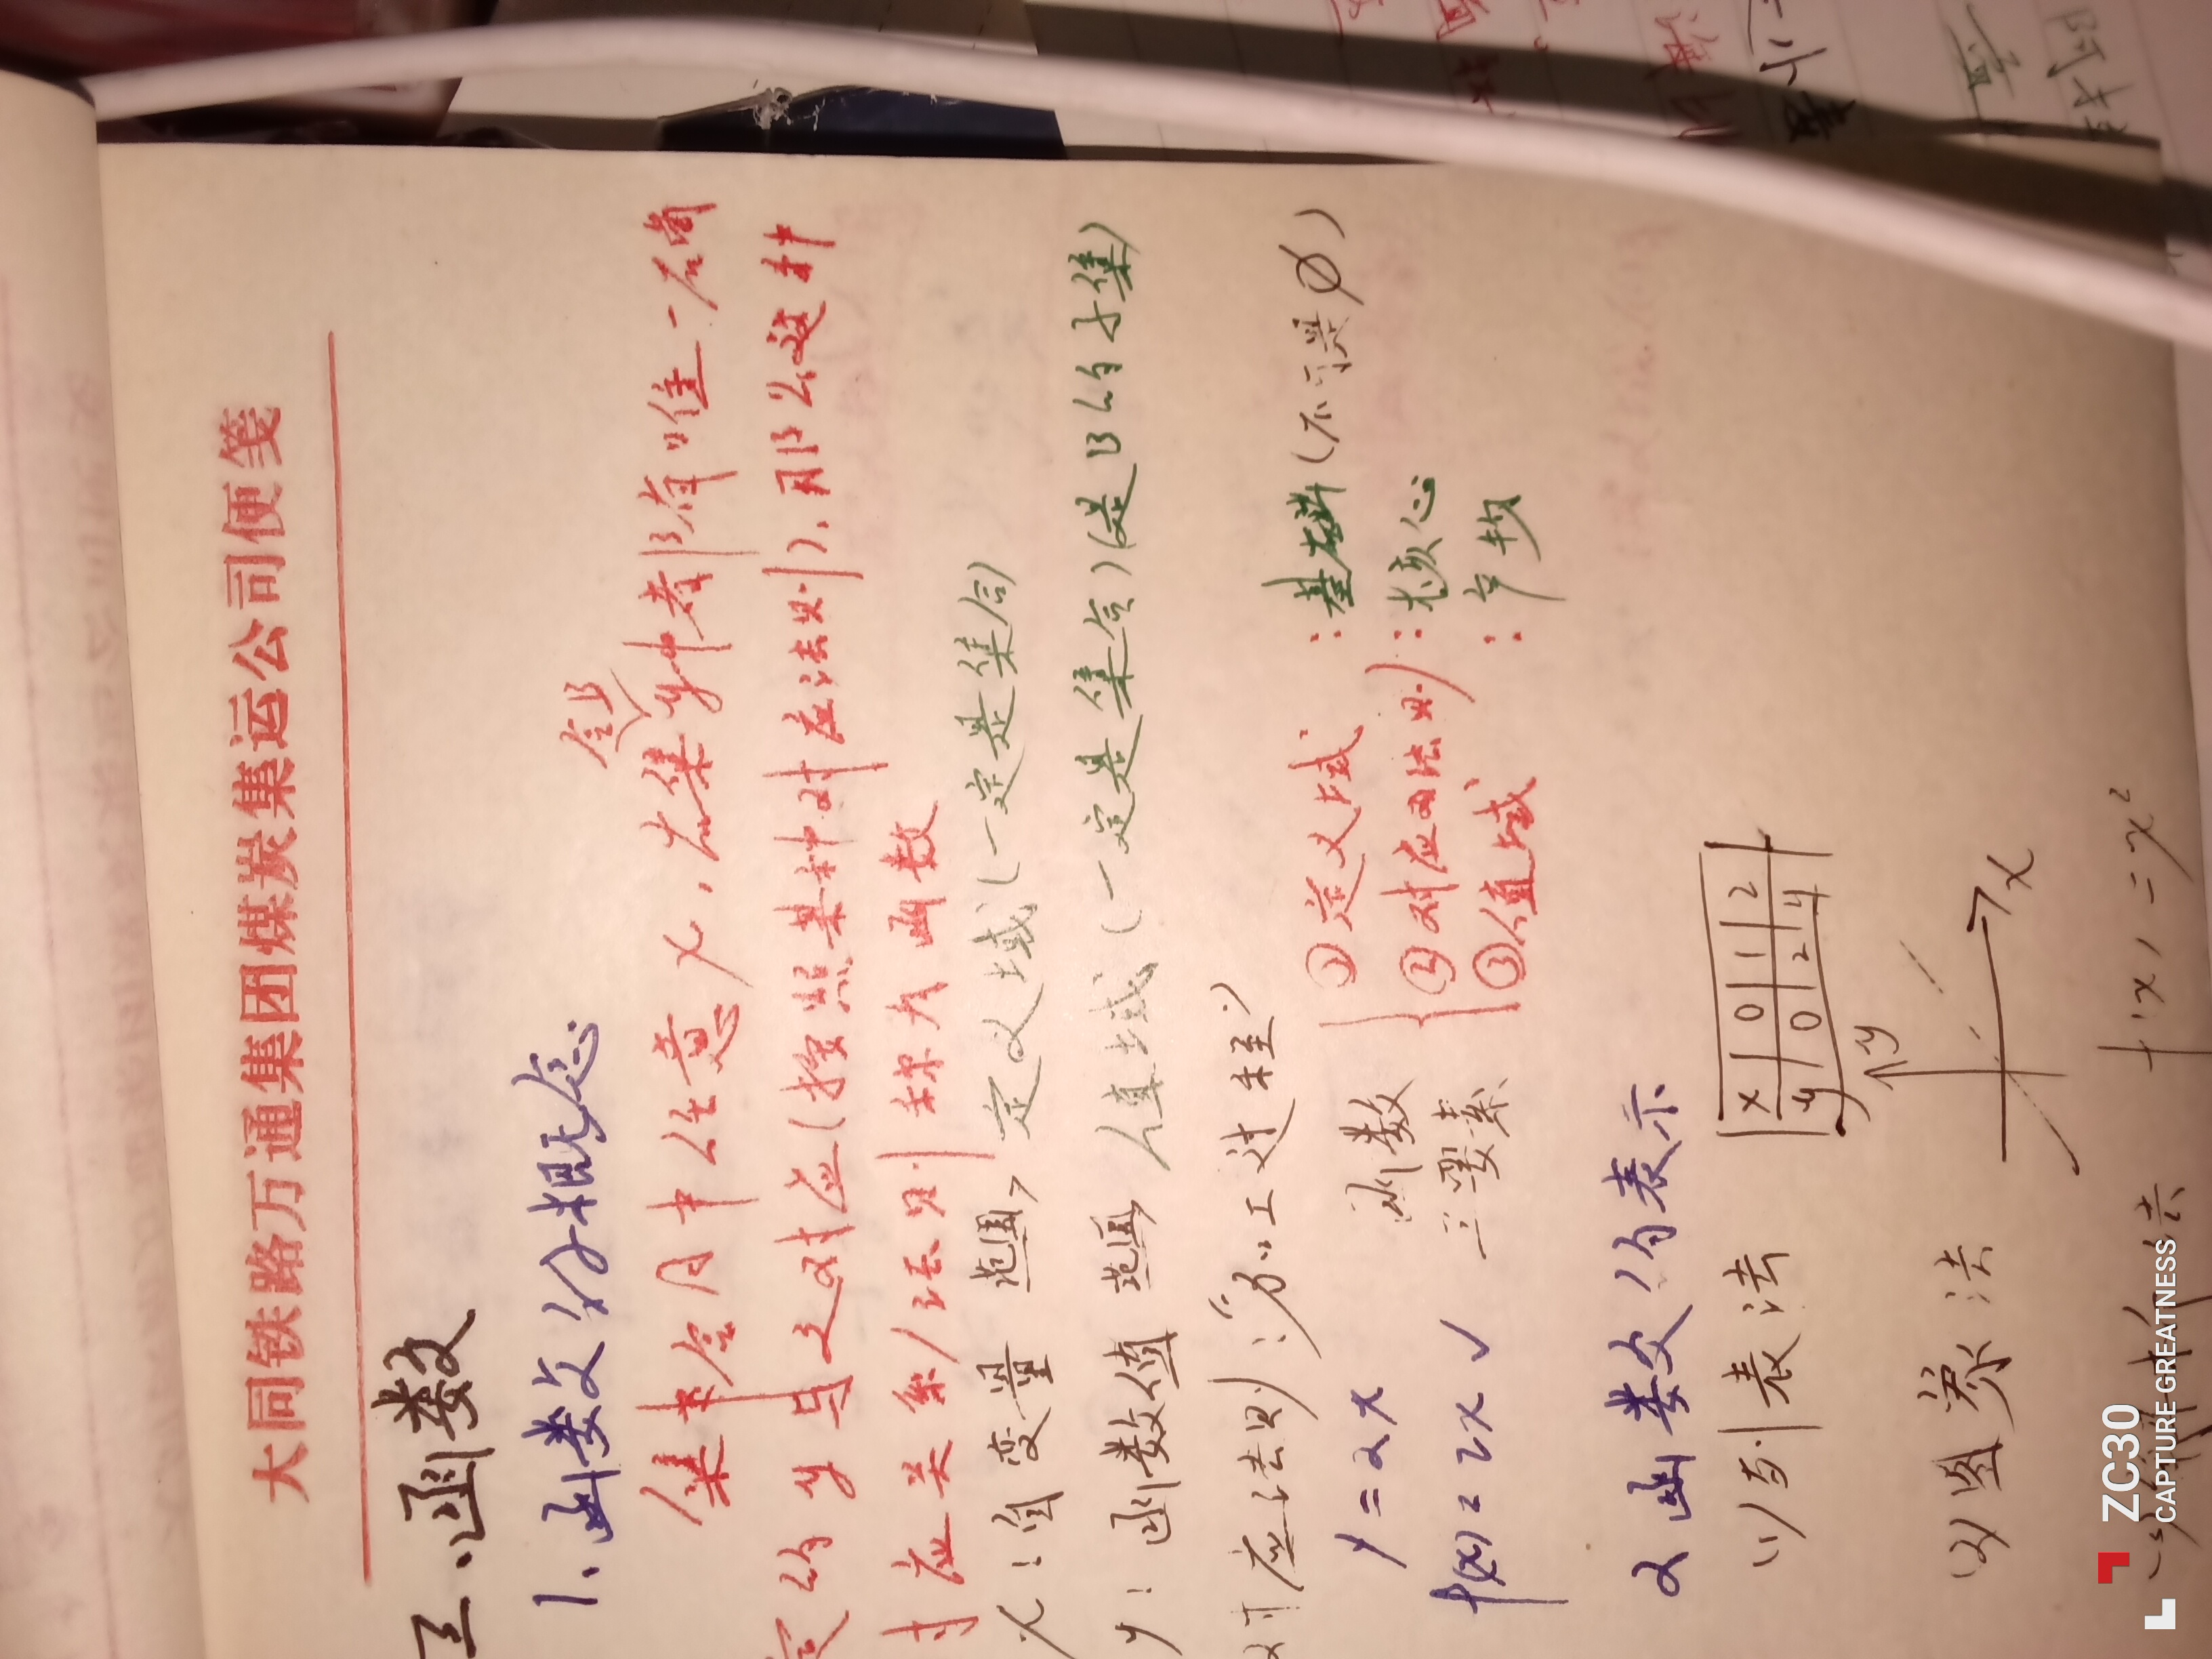 大同铁路万通集团煤炭集运公司便笺
五、函数
1、函数的概念
合B
集合A中任意x,在集y中都有唯一确
定的y与之对应(按照某种对应法则),那么这种
对应关系/法则称为函数
x:自变量 范围> 定义域(一定是集合)
y:函数值 范围> 值域(一定是集合)(是B的子集)
对应法则:“加工过程”
y=2x
f(x)=2x √
函数
三要素
①定义域:基础(不可是∅)
②对应法则:核心
③值域:产物
2 函数的表示
(1)列表法
x 0 1 2
y 0 2 4
(2)图象法
y
x
f(x)=x²
ZC30
CAPTURE GREATNESS